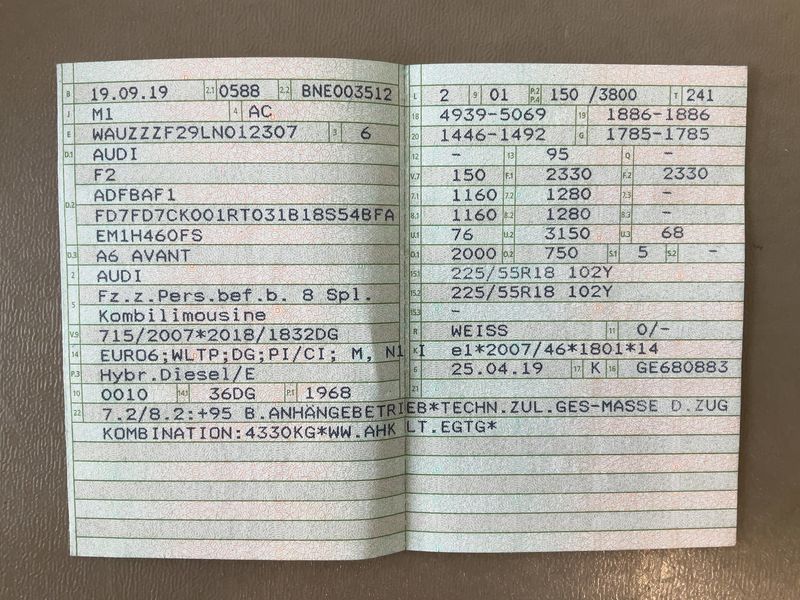 B 19.09.19 2.1 0588 2.2 BNE003512
J M1 4 AC
E WAUZZZF29LN012307 3 6
D.1 AUDI
F2
D.2 ADFBAF1
FD7FD7CK001RT031B18S54BFA
EM1H460FS
D.3 A6 AVANT
2 AUDI
5 Fz.z.Pers.bef.b. 8 Spl.
Kombilimousine
V.9 715/2007*2018/1832DG
14 EURO6;WLTP;DG;PI/CI; M, N1 I
P.3 Hybr.Diesel/E
10 0010 14.1 36DG P.1 1968
L 2 9 01 P.2 P.4 150 /3800 T 241
18 4939-5069 19 1886-1886
20 1446-1492 G 1785-1785
12 - 13 95 Q -
V.7 150 F.1 2330 F.2 2330
7.1 1160 7.2 1280 7.3 -
8.1 1160 8.2 1280 8.3 -
U.1 76 U.2 3150 U.3 68
O.1 2000 O.2 750 S.1 5 S.2 -
15.1 225/55R18 102Y
15.2 225/55R18 102Y
15.3 -
R WEISS 11 0/-
K e1*2007/46*1801*14
6 25.04.19 17 K 16 GE680883
21
22 7.2/8.2:+95 B.ANHÄNGEBETRIEB*TECHN.ZUL.GES-MASSE D.ZUG
KOMBINATION:4330KG*WW.AHK LT.EGTG*